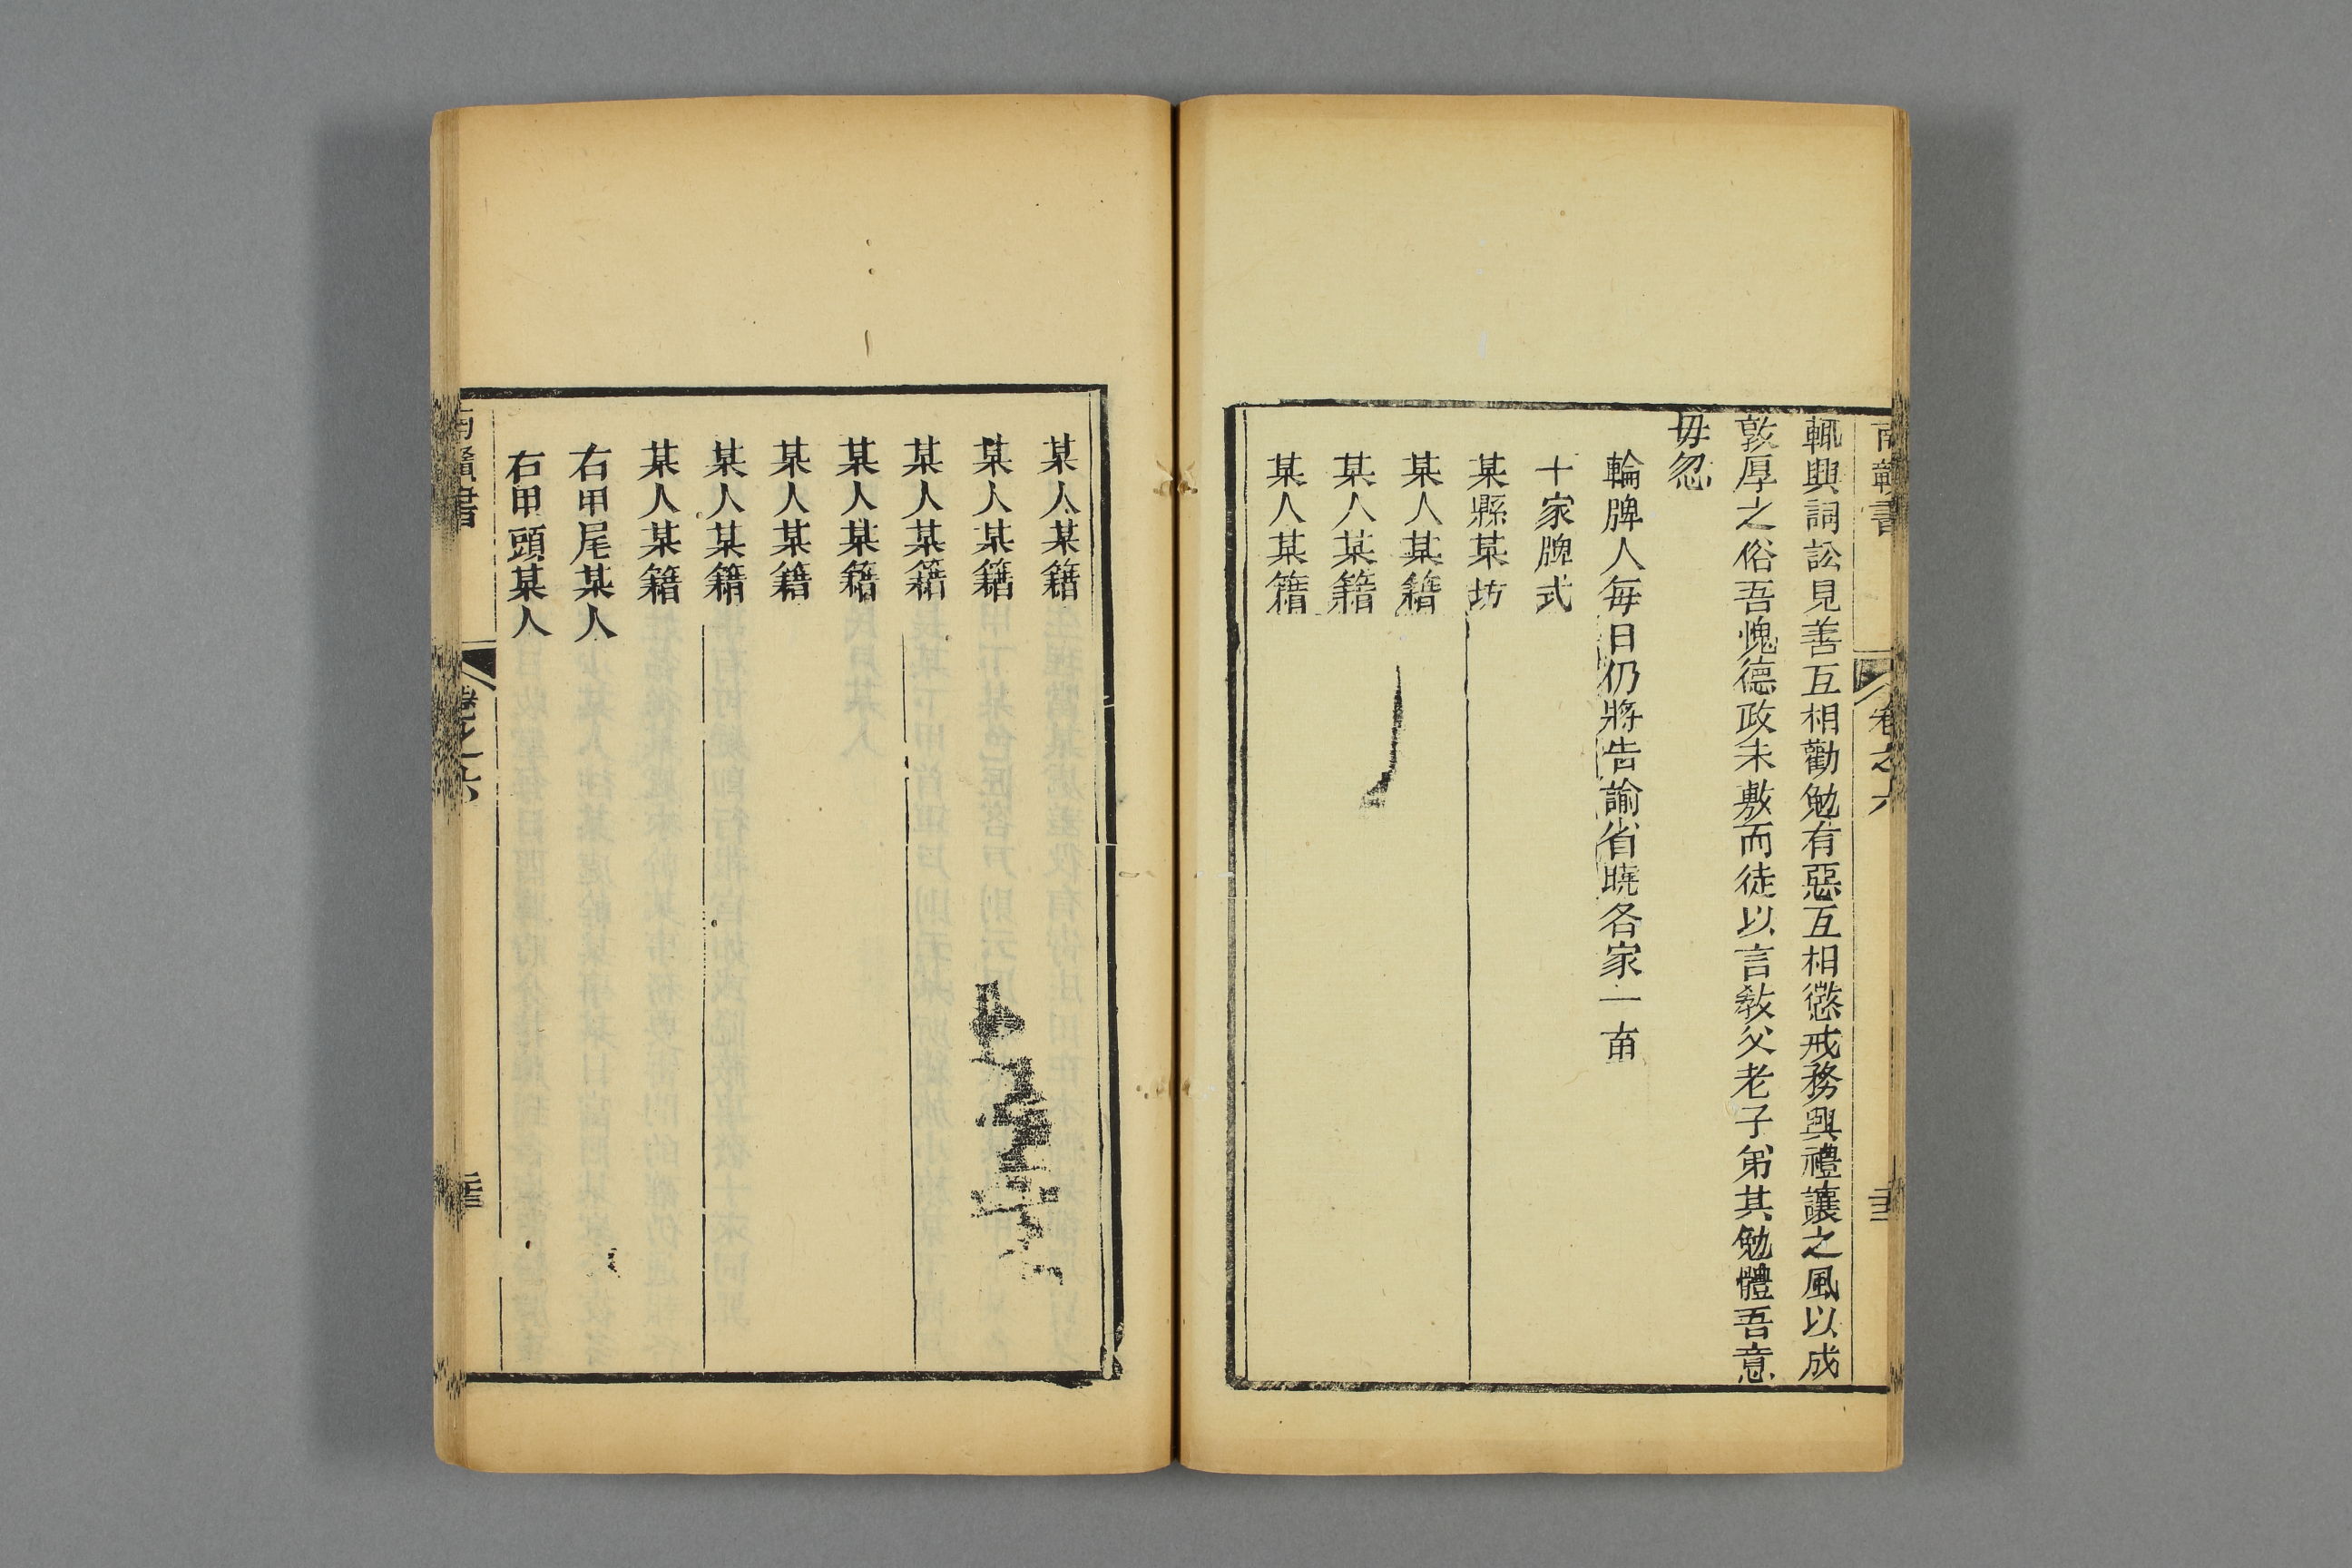 南贛書
卷之六
輒興詞訟見善互相勸勉有惡互相懲戒務興禮讓之風以成
敦厚之俗吾愧德政未敷而徒以言敎父老子弟其勉體吾意
毋忽
輪牌人每日仍將告諭省曉各家一畨
十家牌式
某縣某坊
某人某籍
某人某籍
某人某籍
某人某籍
某人某籍
某人某籍
某人某籍
某人某籍
某人某籍
某人某籍
右甲尾某人
右甲頭某人
南贛書
卷之六